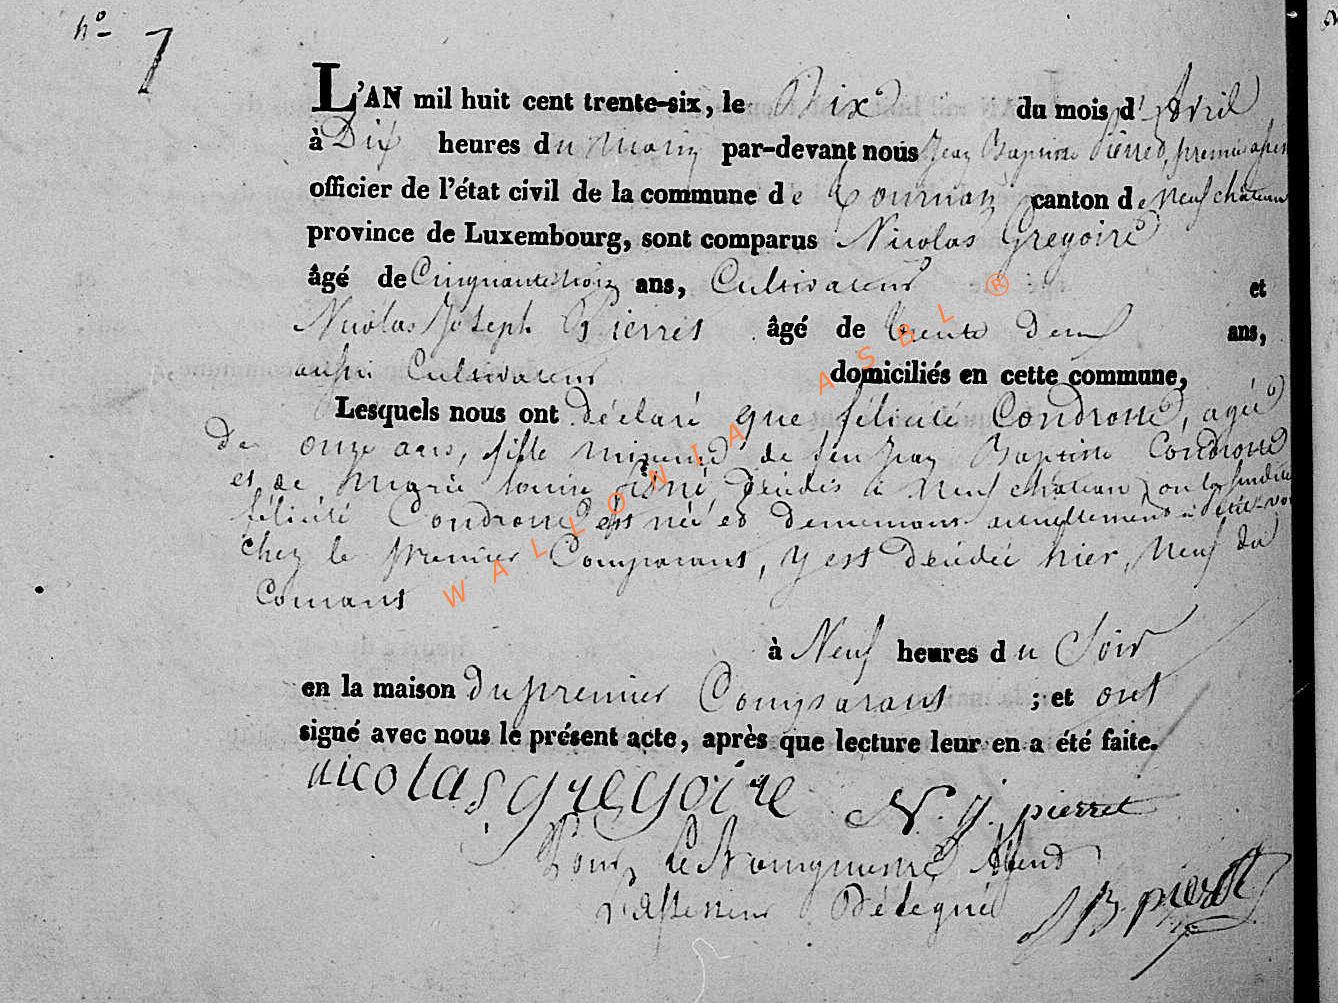 n° 7
L'AN mil huit cent trente-six, le Dix du mois d'Avril
à Dix heures du matin par-devant nous Jean Baptiste Pierret, premier
officier de l'état civil de la commune de Tournay canton de Neufchateau
province de Luxembourg, sont comparus Nicolas Gregoire
âgé de Cinquante trois ans, Cultivateur et
Nicolas Joseph Pierret âgé de trente deux ans,
aussi Cultivateur domiciliés en cette commune,
Lesquels nous ont déclaré que félicité Condrotte, agée
de onze ans, fille mineure de feu Jean Baptiste Condrotte
et de Marie louise décédés à Neufchateau, ou la
félicité Condrotte est née et demeurant actuellement à
chez le premier Comparant, y est décédée hier, Neuf du
Courant
à Neuf heures du Soir
en la maison du premier Comparant ; et ont
signé avec nous le présent acte, après que lecture leur en a été faite.
nicolas gregoire N. J. pierret
Pour le Bourgmestre Absent
l'assesseur Délégué J B pierret
WALLONIA ASBL ®